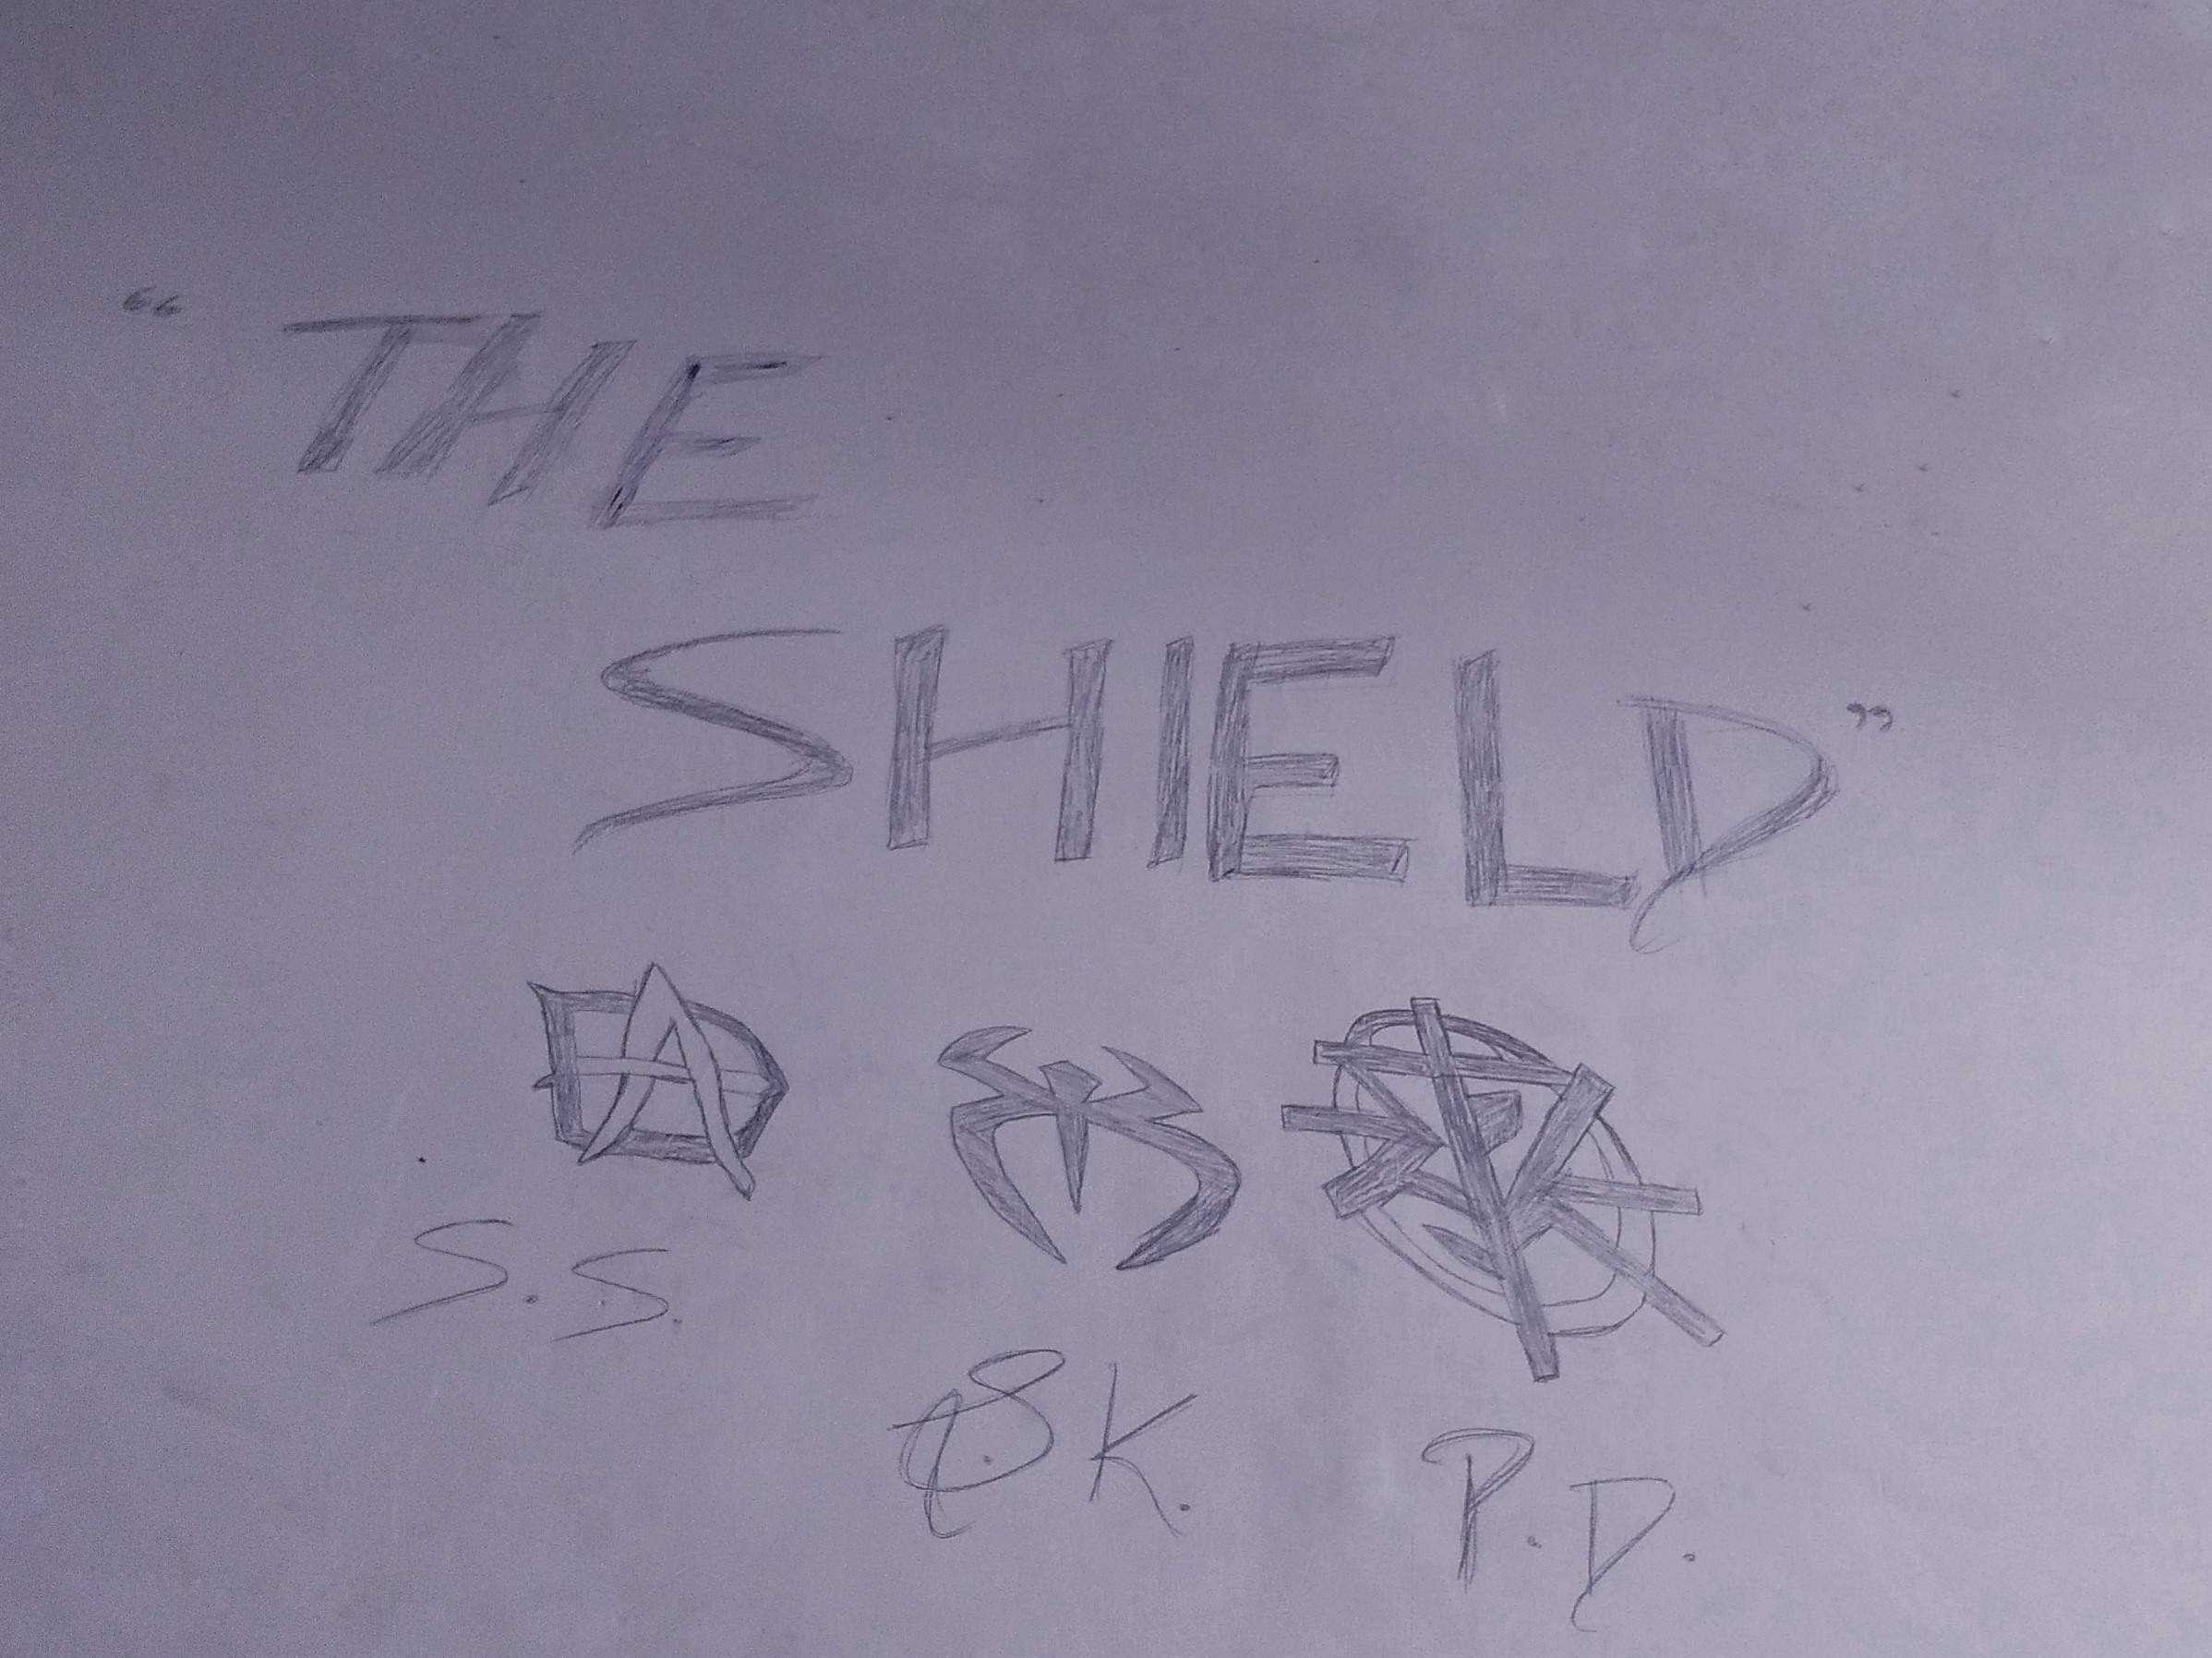 “ THE
SHIELD ”
S.S.
S.K.
P.D.